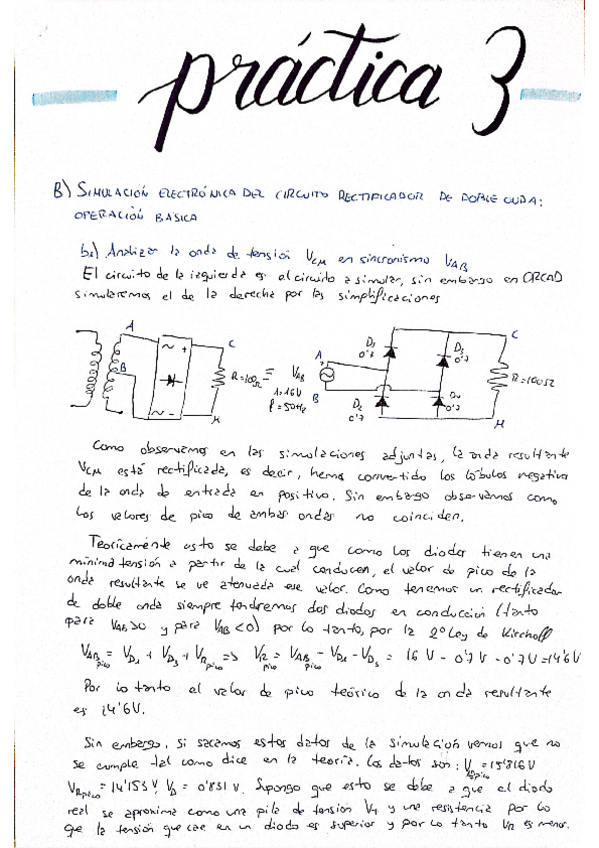 práctica 3
B) SIMULACIÓN ELECTRÓNICA DEL CIRCUITO RECTIFICADOR DE DOBLE ONDA:
OPERACIÓN BÁSICA
b1) Analizar la onda de tensión VCM en sincronismo VAB
El circuito de la izquierda es el circuito a simular, sin embargo en ORCAD
simularemos el de la derecha por las simplificaciones
A
B
C
M
R=100Ω
=
VAB
A=16V
f=50Hz
A
B
D1
0'7
D3
0'7
D2
0'7
D4
0'7
C
R=100Ω
M
Como observamos en las simulaciones adjuntas, la onda resultante
VCM está rectificada, es decir, hemos convertido los lóbulos negativos
de la onda de entrada en positivo. Sin embargo observamos como
los valores de pico de ambas ondas no coinciden.
Teoricamente esto se debe a que como los diodos tienen una
mínima tensión a partir de la cual conducen, el valor de pico de la
onda resultante se ve atenuada ese valor. Como tenemos un rectificador
de doble onda siempre tendremos dos diodos en conducción (tanto
para VAB>0 y para VAB<0) por lo tanto, por la 2º Ley de Kirchoff
VAB pico = VD1 + VD3 + VR pico => VR pico = VAB pico - VD1 - VD3 = 16 V - 0'7 V - 0'7 V = 14'6 V
Por lo tanto el valor de pico teórico de la onda resultante
es 14'6V.
Sin embargo, si sacamos estos datos de la simulación vemos que no
se cumple tal como dice en la teoría. Los datos son: VAB pico = 15'816 V
VR pico = 14'153 V, VD = 0'831 V. Supongo que esto se debe a que el diodo
real se aproxima como una pila de tensión Vγ y una resistencia por lo
que la tensión que cae en un diodo es superior y por lo tanto VR es menor.